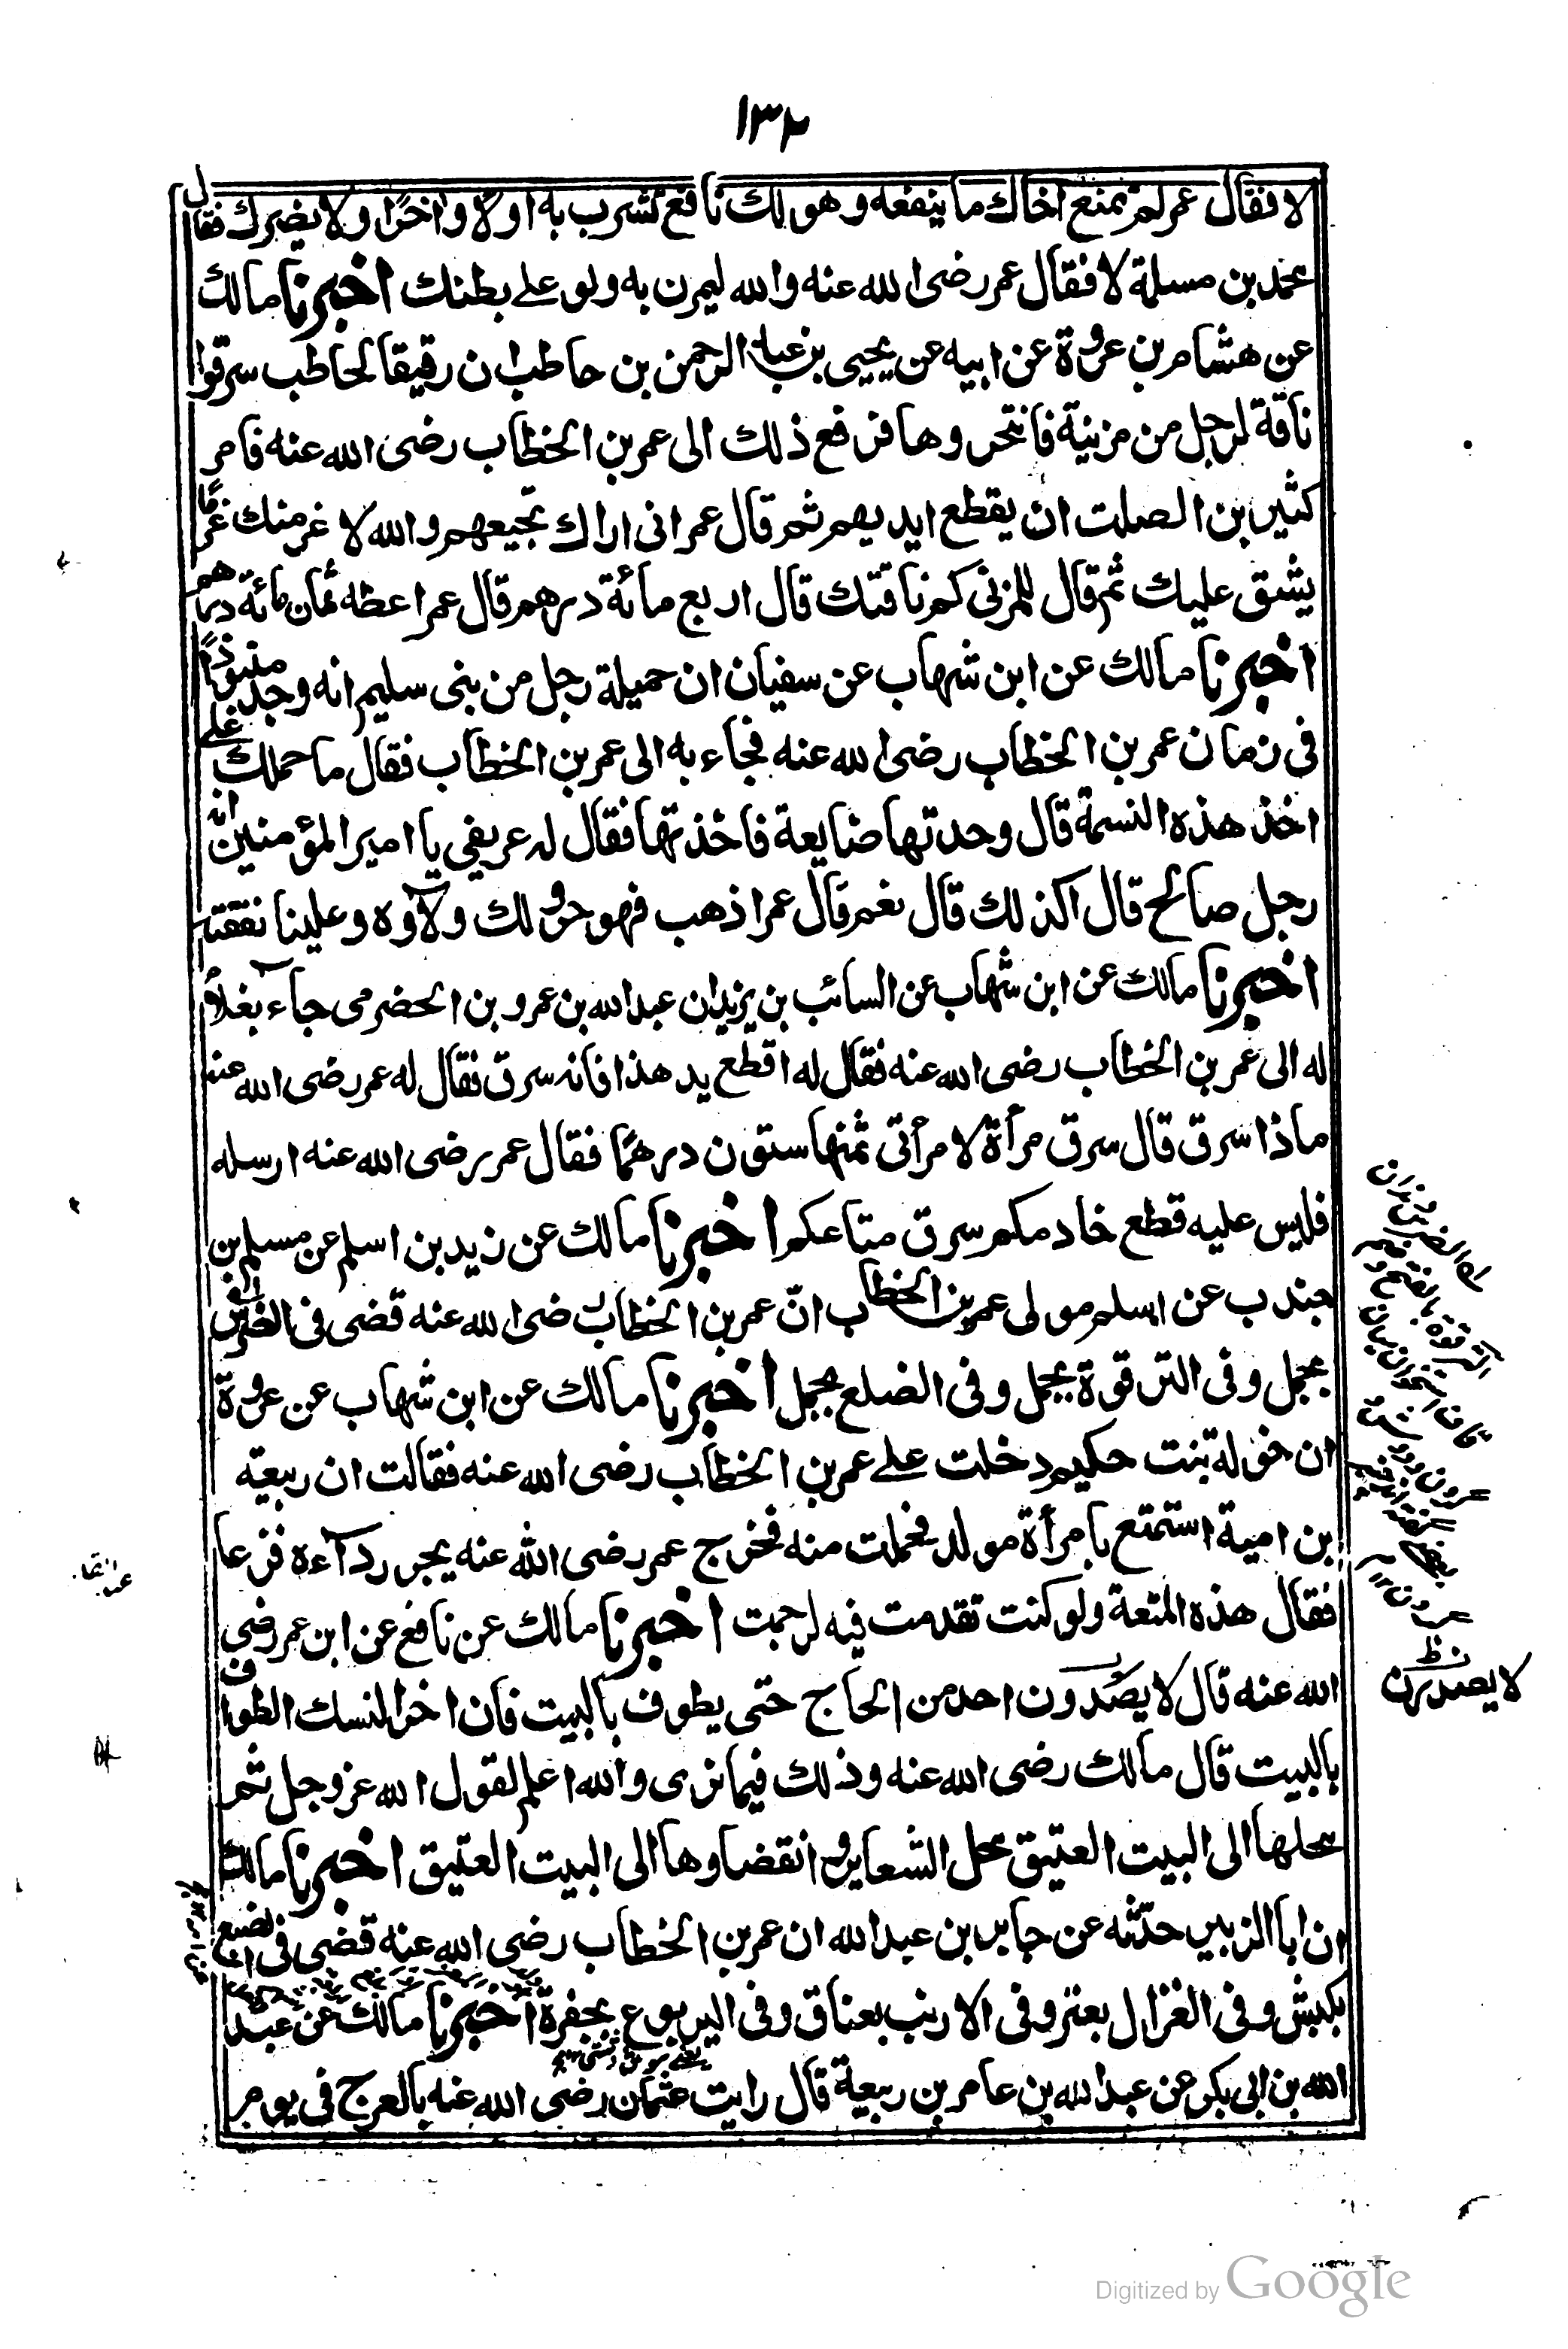 ١٣٢
لا فقال عمر لم تمنع اخاك ما ينفعه وهو لك نافع تشرب به اولا واخرًا ولا يضرك فقال
محمد بن مسلمة لا فقال عمر رضى الله عنه والله ليمرن به ولو على بطنك اخبرنا مالك
عن هشام بن عروة عن ابيه عن يحيى بن عبد الرحمن بن حاطب ان رقيقا لحاطب سرقوا
ناقة لرجل من مزينة فانتحروها فرفع ذلك الى عمر بن الخطاب رضى الله عنه فامر
كثير بن الصلت ان يقطع ايديهم ثم قال عمر انى اراك تجيعهم والله لاغرمنك غرمًا
يشق عليك ثم قال للمزنى كم ناقتك قال اربع مائة درهم قال عمر اعطه ثمان مائة درهم
اخبرنا مالك عن ابن شهاب عن سفيان ان حميلة رجل من بنى سليم انه وجد منبوذًا
فى زمان عمر بن الخطاب رضى الله عنه فجاء به الى عمر بن الخطاب فقال ما حملك على
اخذ هذه النسمة قال وجدتها ضايعة فاخذتها فقال له عريفي يا امير المؤمنين انه
رجل صالح قال اكذلك قال نعم قال عمر اذهب فهو حر ولك ولآؤه وعلينا نفقته
اخبرنا مالك عن ابن شهاب عن السائب بن يزيد ان عبد الله بن عمرو بن الحضرمى جآء بغلام
له الى عمر بن الخطاب رضى الله عنه فقال له اقطع يد هذا فانه سرق فقال له عمر رضى الله عنه
ماذا سرق قال سرق مرأة لامرأتى ثمنها ستون درهمًا فقال عمر رضى الله عنه ارسله
فليس عليه قطع خادمكم سرق متاعكم اخبرنا مالك عن زيد بن اسلم عن مسلم بن
جندب عن اسلم مولى عمر بن الخطاب انّ عمر بن الخطاب رضى الله عنه قضى فى الضرس
بجمل وفى الترقوة بجمل وفى الضلع بجمل اخبرنا مالك عن ابن شهاب عن عروة
ان خولة بنت حكيم دخلت على عمر بن الخطاب رضى الله عنه فقالت ان ربيعة
بن امية استمتع بامرأة مولد فحملت منه فخرج عمر رضى الله عنه يجر ردآءه فزعا
فقال هذه المتعة ولو كنت تقدمت فيه لرجمت اخبرنا مالك عن نافع عن ابن عمر رضى
الله عنه قال لا يصدرون احد من الحاج حتى يطوف بالبيت فان اخر النسك الطواف
بالبيت قال مالك رضى الله عنه وذلك فيما نرى والله اعلم لقول الله عز وجل ثم
محلها الى البيت العتيق محل الشعاير وانقضاوها الى البيت العتيق اخبرنا مالك
ان ابا الزبير حدّثه عن جابر بن عبد الله ان عمر بن الخطاب رضى الله عنه قضى فى الضبع
بكبش وفى الغزال بعنز وفى الارنب بعناق وفى اليربوع بجفرة اخبرنا مالك عن عبد
الله بن ابى بكر عن عبد الله بن عامر بن ربيعة قال رايت عثمان رضى الله عنه بالعرج فى يوم
لا يصدرن
Digitized by Google